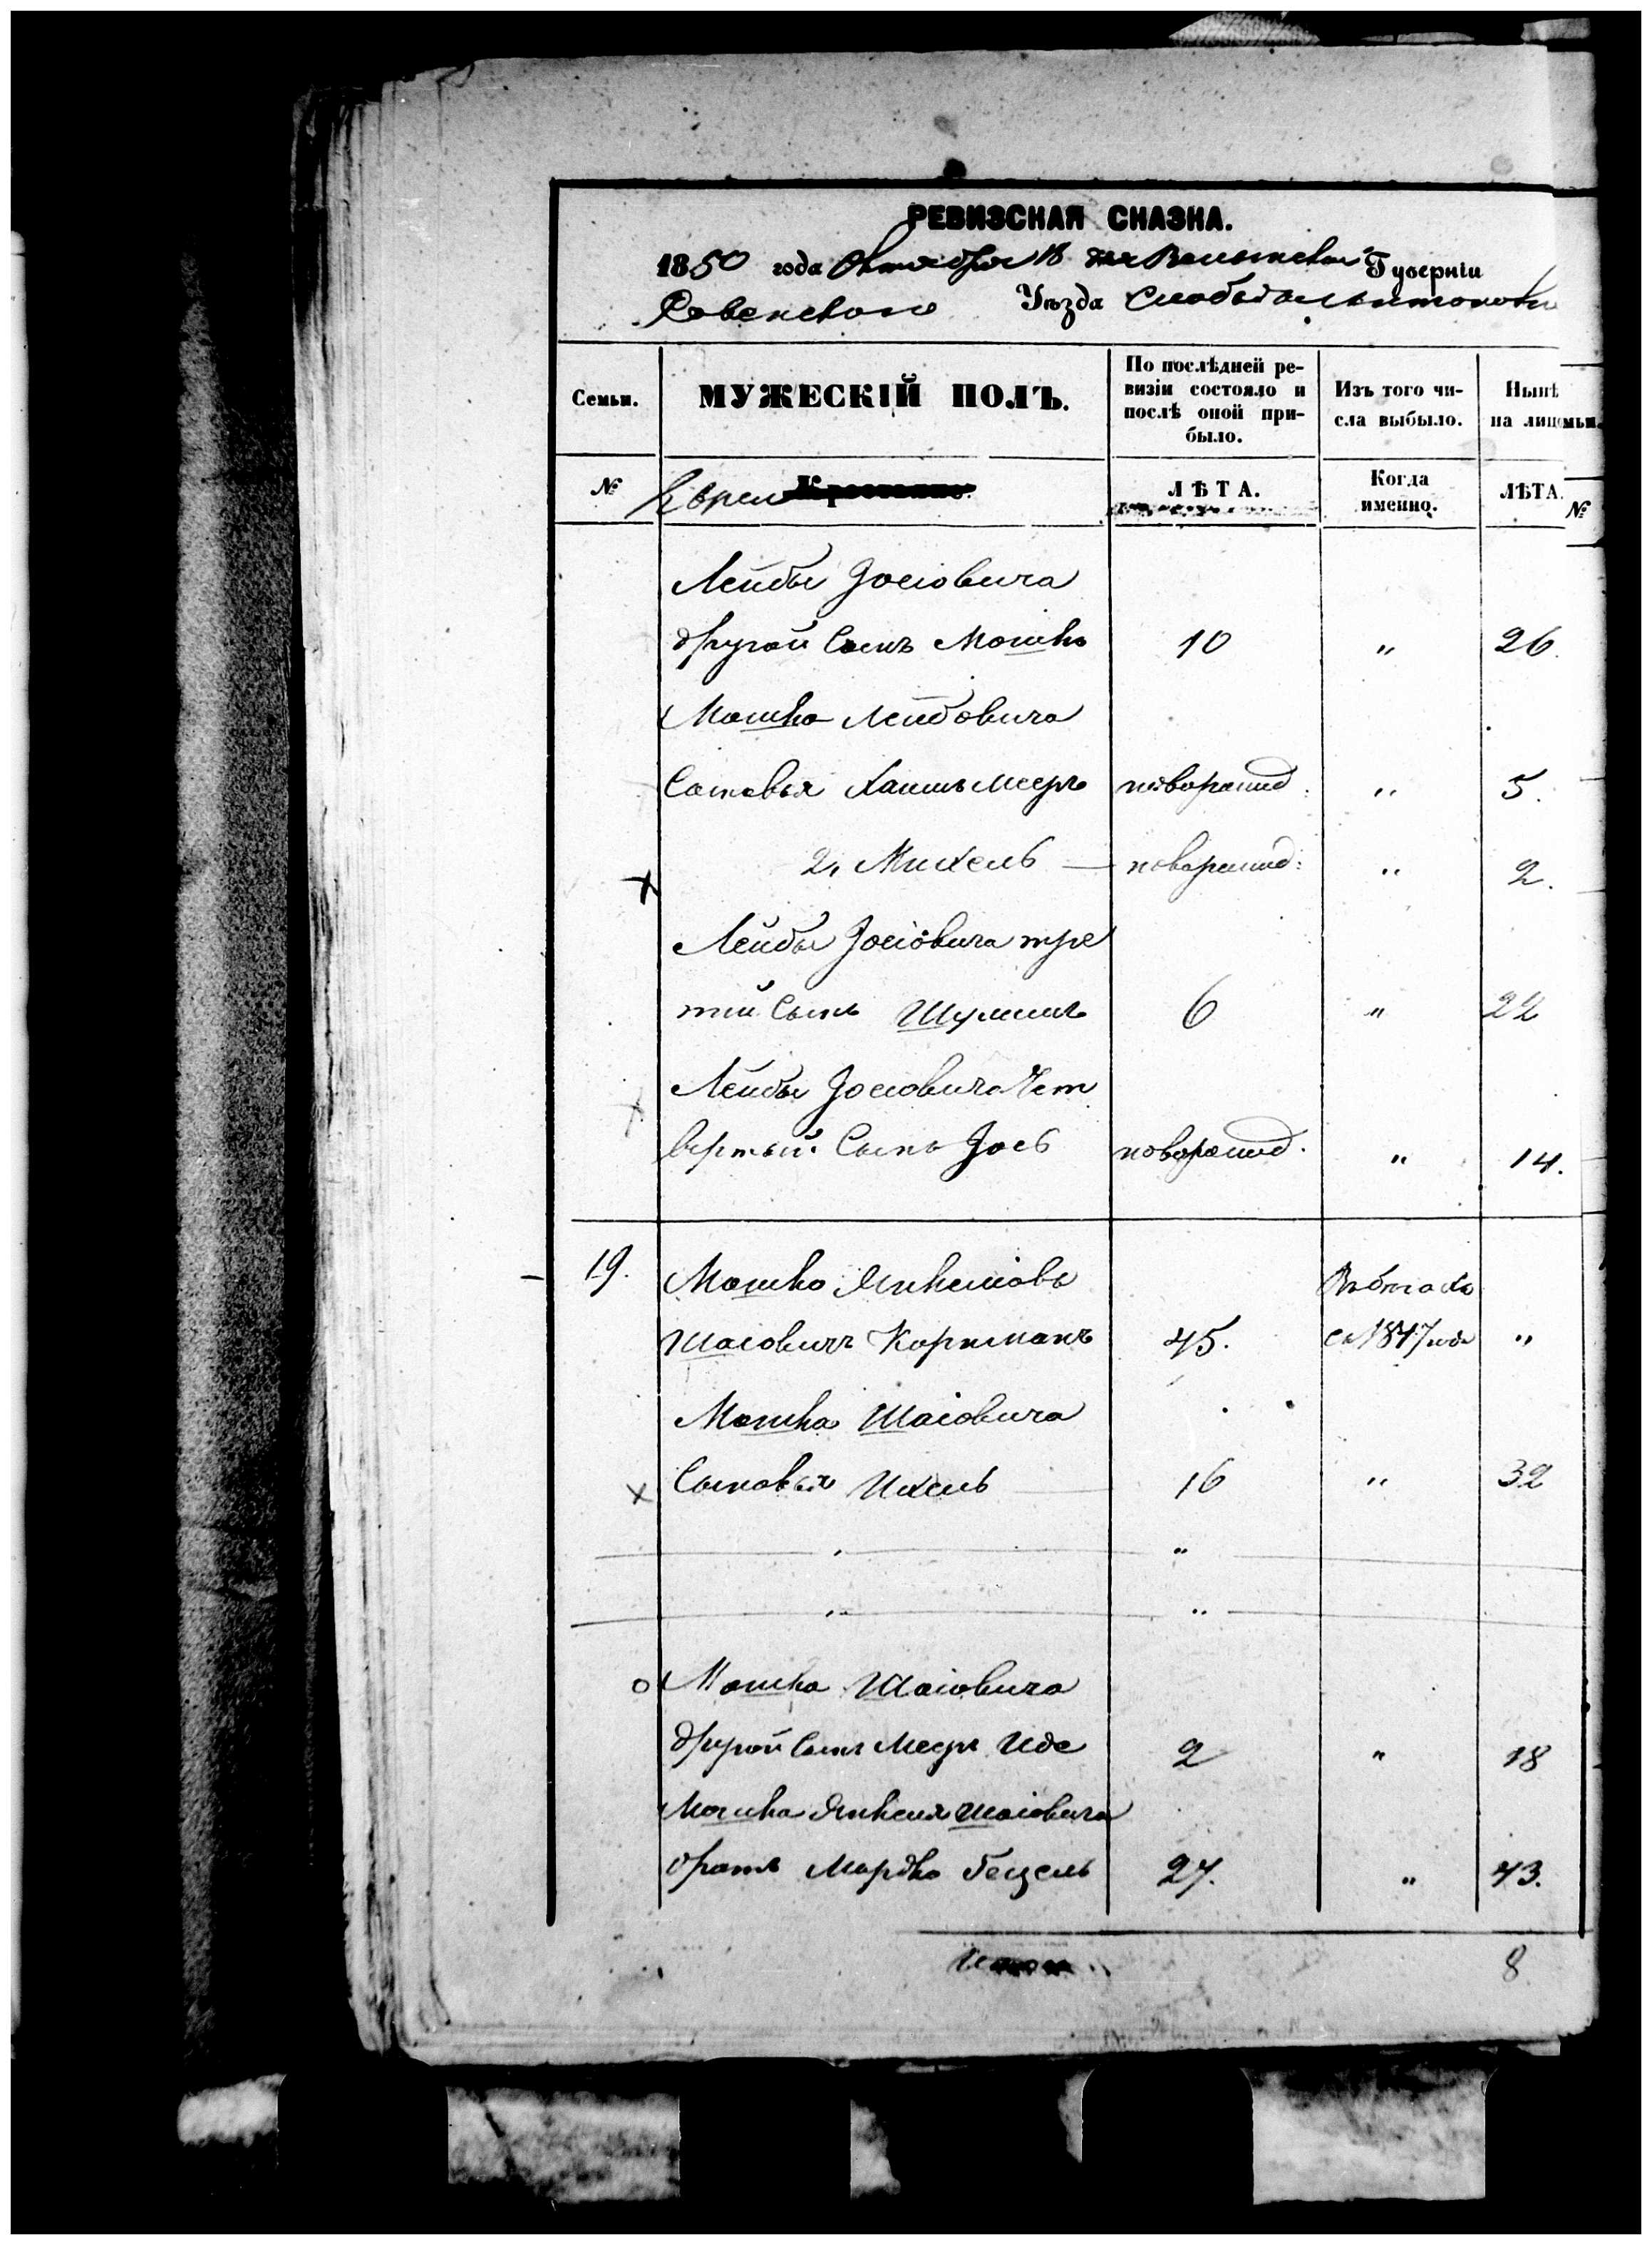 РЕВИЗСКАЯ СКАЗКА.
1850 года Октября 18 дня Волынской Губерніи
Ровенского Уѣзда
Семьи.
МУЖЕСКІЙ ПОЛЪ.
По послѣдней ре-
визіи состояло и
послѣ оной при-
было.
Изъ того чи-
сла выбыло.
Нынѣ
на лицо
мьи.
№
Евреи
ЛѢТА.
Когда
именно.
ЛѢТА.
№
Лейбы Іосіовича
другой Сынъ Мошко 10 " 26.
Мошка Лейбовича
Сыновья Хаимъ Мееръ новорожд. " 5.
2, Михель — новорожд: " 2.
Лейбы Іосіовича тре
тій Сынъ Шулимъ 6 " 22
Лейбы Іосіовича Чет
вертый Сынъ Іось новорожд. " 14.
19. Мошко Янкеліовъ
Шаіовичъ 45. Съ 1847 года "
Мошка Шаіовича
Сыновья Ихель 16 " 32
Мошка Шаіовича
другой Сынъ Мееръ Иде 2 " 18
Мошка Янкеля Шаіовича
братъ Мордко Бецель 27. " 43.
8